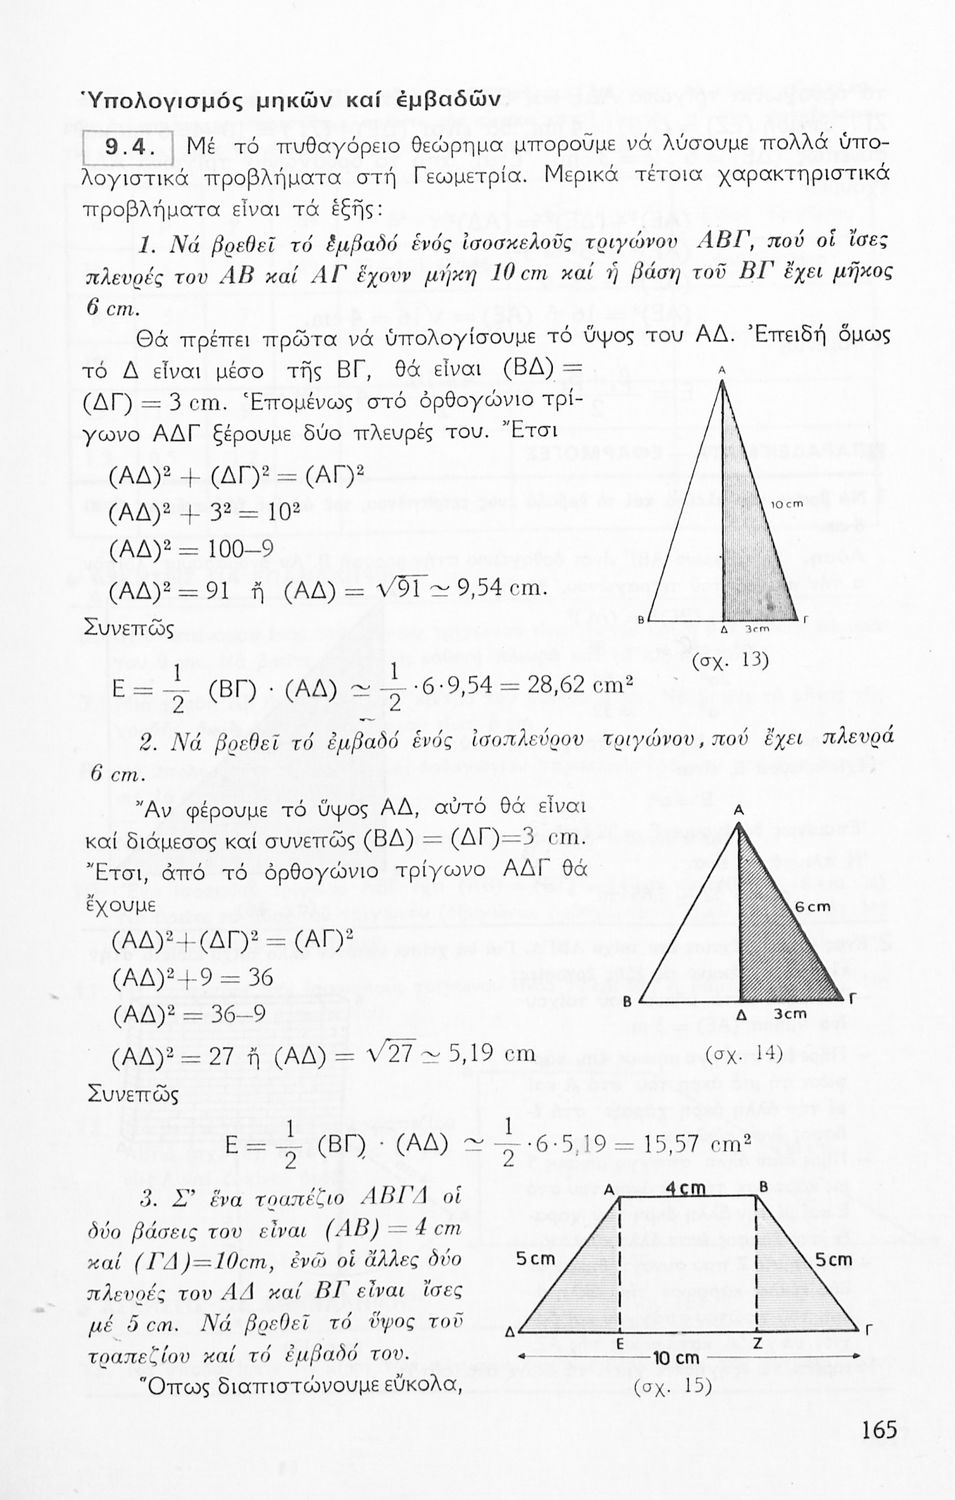 Ὑπολογισμός μηκῶν καί ἐμβαδῶν
9.4. Μέ τό πυθαγόρειο θεώρημα μποροῦμε νά λύσουμε πολλά ὑπο-
λογιστικά προβλήματα στή Γεωμετρία. Μερικά τέτοια χαρακτηριστικά
προβλήματα εἶναι τά ἑξῆς:
1. Νά βρεθεῖ τό ἐμβαδό ἑνός ἰσοσκελοῦς τριγώνου ΑΒΓ, πού οἱ ἴσες
πλευρές του ΑΒ καί ΑΓ ἔχουν μήκη 10 cm καί ἡ βάση τοῦ ΒΓ ἔχει μῆκος
6 cm.
Θά πρέπει πρῶτα νά ὑπολογίσουμε τό ὕψος του ΑΔ. Ἐπειδή ὅμως
τό Δ εἶναι μέσο τῆς ΒΓ, θά εἶναι (ΒΔ) =
(ΔΓ) = 3 cm. Ἑπομένως στό ὀρθογώνιο τρί-
γωνο ΑΔΓ ξέρουμε δύο πλευρές του. Ἔτσι
(ΑΔ)² + (ΔΓ)² = (ΑΓ)²
(ΑΔ)² + 3² = 10²
(ΑΔ)² = 100–9
(ΑΔ)² = 91 ἤ (ΑΔ) = √91 ≃ 9,54 cm.
Συνεπῶς
Ε = 1/2 (ΒΓ) · (ΑΔ) ≃ 1/2 ·6·9,54 = 28,62 cm²
Α
10 cm
Β Δ 3cm Γ
(σχ. 13)
2. Νά βρεθεῖ τό ἐμβαδό ἑνός ἰσοπλεύρου τριγώνου, πού ἔχει πλευρά
6 cm.
Ἄν φέρουμε τό ὕψος ΑΔ, αὐτό θά εἶναι
καί διάμεσος καί συνεπῶς (ΒΔ) = (ΔΓ)=3 cm.
Ἔτσι, ἀπό τό ὀρθογώνιο τρίγωνο ΑΔΓ θά
ἔχουμε
(ΑΔ)²+(ΔΓ)² = (ΑΓ)²
(ΑΔ)²+9 = 36
(ΑΔ)² = 36–9
(ΑΔ)² = 27 ἤ (ΑΔ) = √27 ≃ 5,19 cm
Α
6cm
Β Γ
Δ 3cm
(σχ. 14)
Συνεπῶς
Ε = 1/2 (ΒΓ) · (ΑΔ) ≃ 1/2 ·6·5,19 = 15,57 cm²
3. Σ' ἕνα τραπέζιο ΑΒΓΔ οἱ
δύο βάσεις του εἶναι (ΑΒ) = 4 cm
καί (ΓΔ)=10cm, ἐνῶ οἱ ἄλλες δύο
πλευρές του ΑΔ καί ΒΓ εἶναι ἴσες
μέ 5 cm. Νά βρεθεῖ τό ὕψος τοῦ
τραπεζίου καί τό ἐμβαδό του.
Ὅπως διαπιστώνουμε εὔκολα,
Α 4cm Β
5cm 5cm
Δ Γ
Ε Ζ
10 cm
(σχ. 15)
165